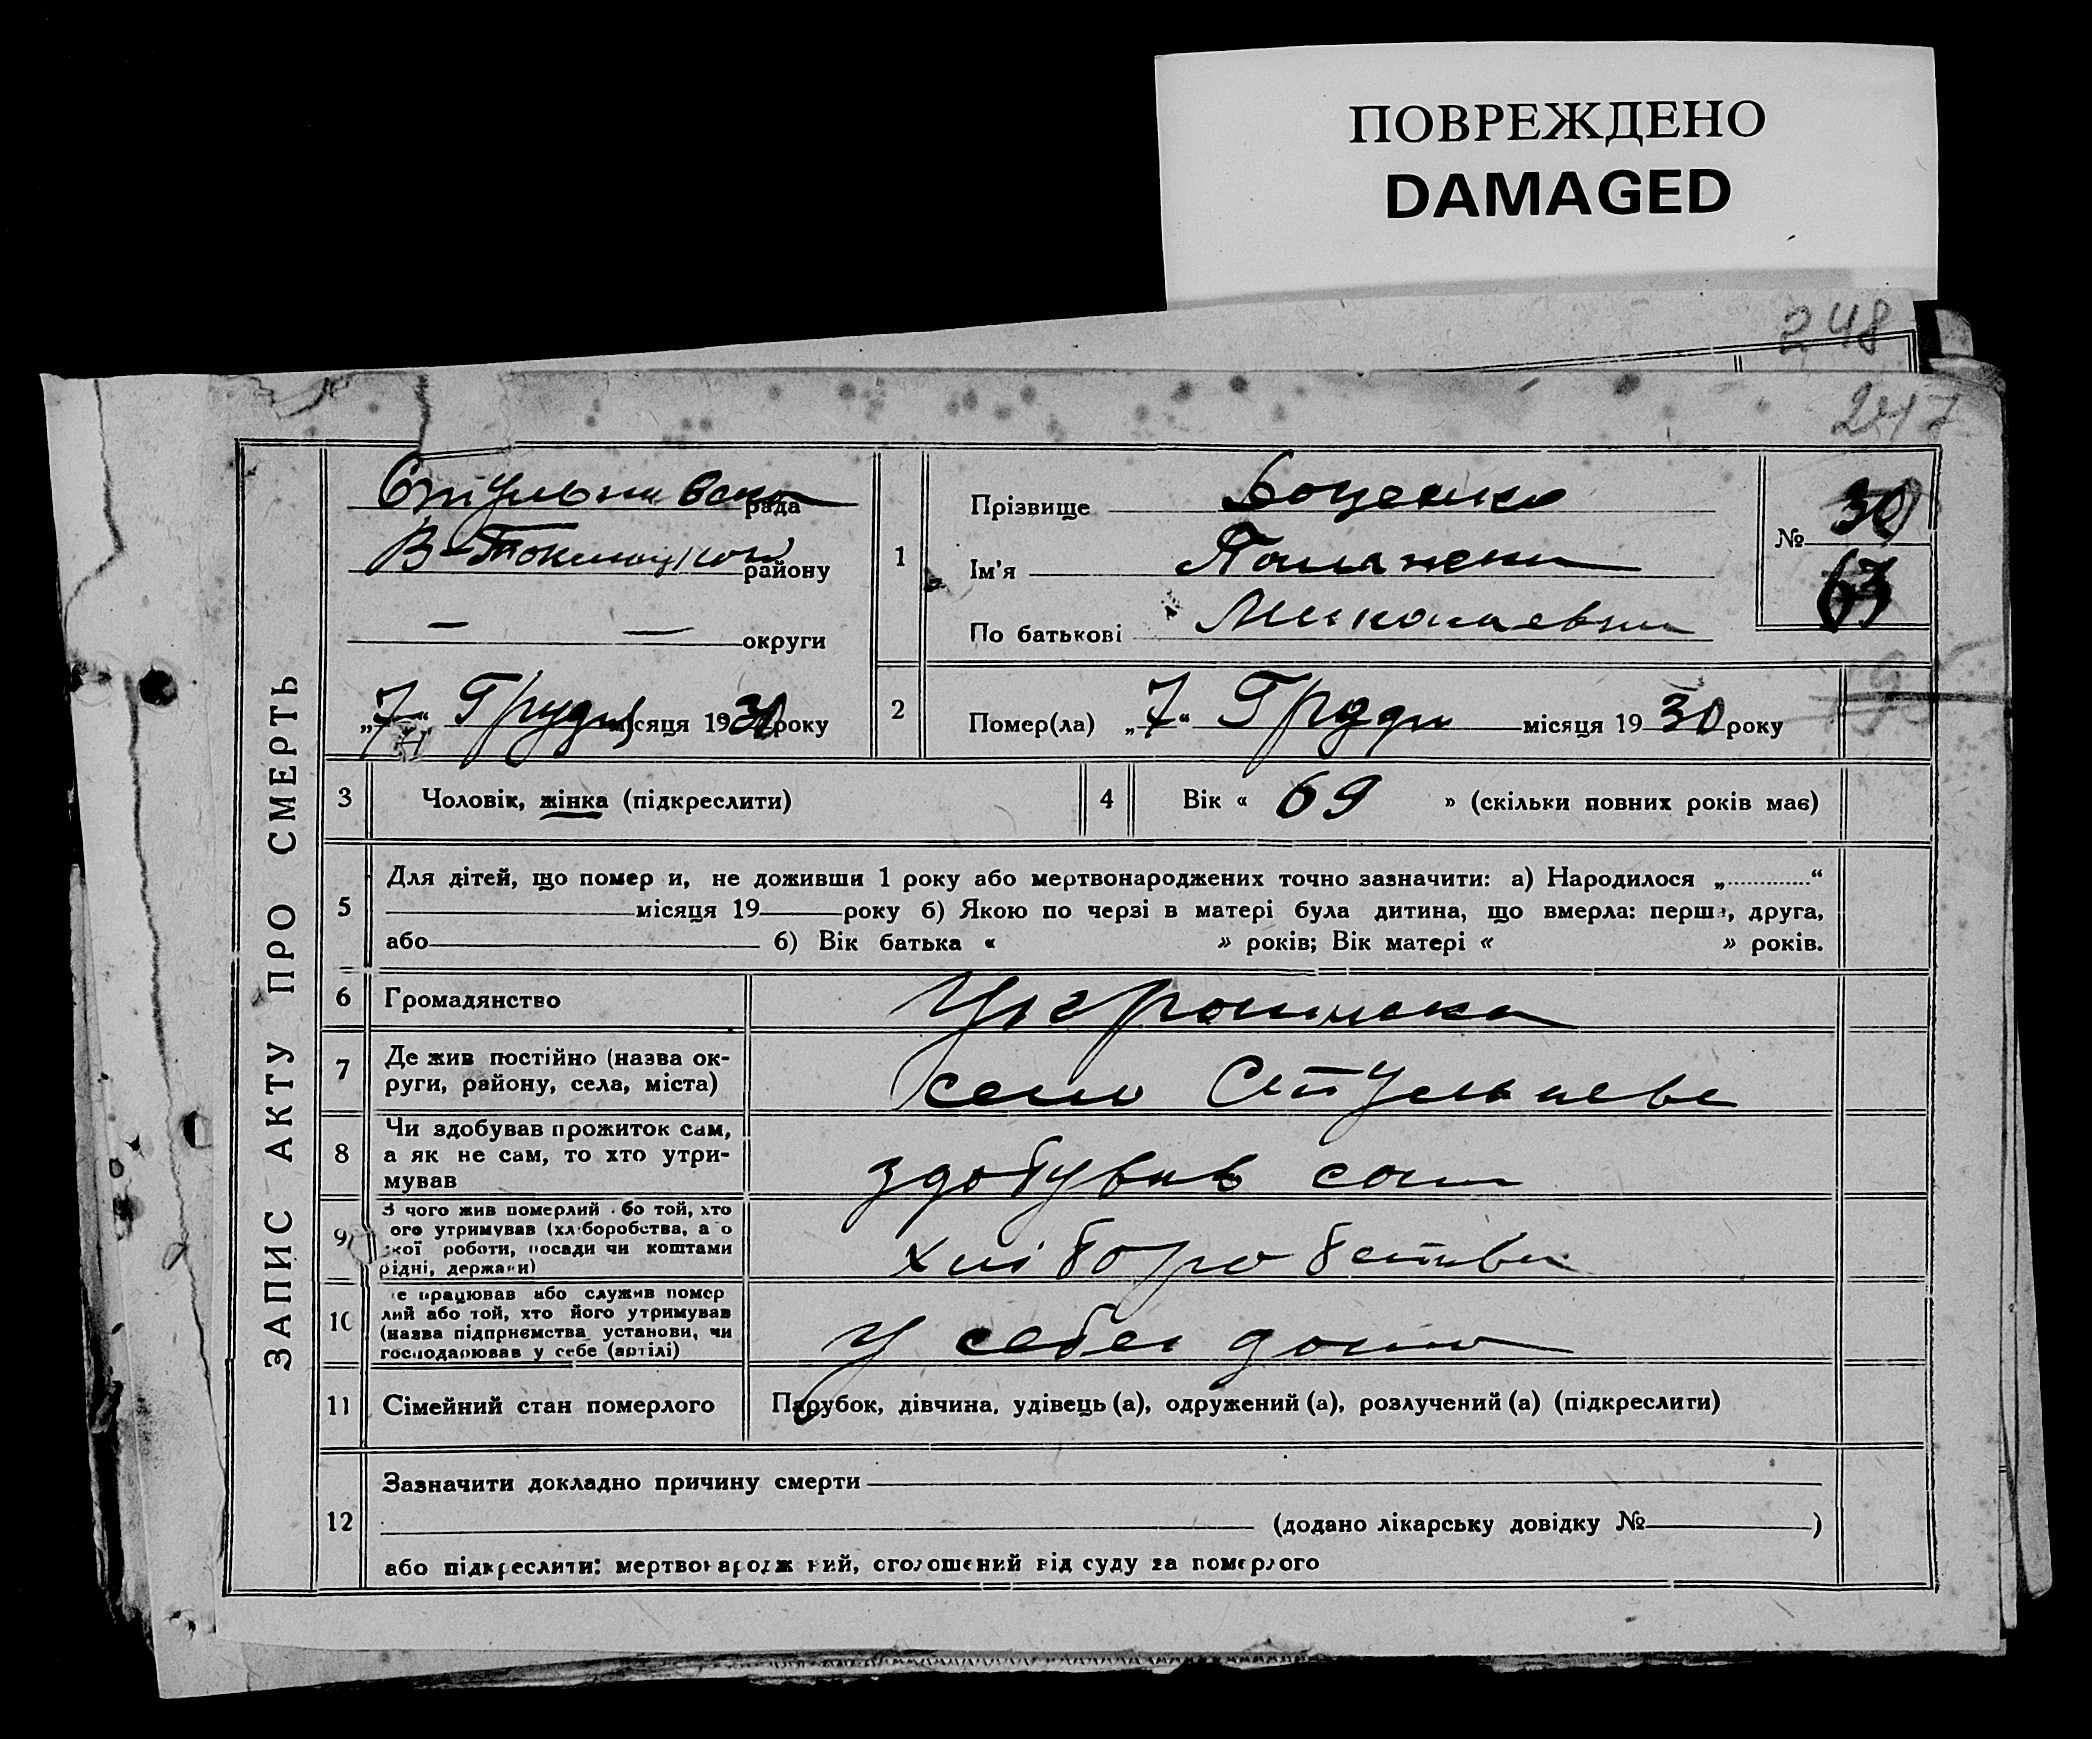 ПОВРЕЖДЕНО
DAMAGED
248
247
ЗАПИС АКТУ ПРО СМЕРТЬ
рада
В-Токмацкой району
— — округи
„7“ Грудня місяця 1930 року
1
Прізвище Боценко
Ім'я
По батькові Миколаевна
№ 30
63
2
Помер(ла) „7“ Грудня місяця 1930 року
3 Чоловік, жінка (підкреслити)
4 Вік « 69 » (скільки повних років має)
5 Для дітей, що помер и, не доживши 1 року або мертвонароджених точно зазначити: а) Народилося „ “
місяця 19 року б) Якою по черзі в матері була дитина, що вмерла: перша, друга,
або б) Вік батька « » років; Вік матері « » років.
6 Громадянство
7 Де жив постійно (назва ок-
руги, району, села, міста)
село Стульневе
8 Чи здобував прожиток сам,
а як не сам, то хто утри-
мував
здобував сам
9 З чого жив померлий або той, хто
ого утримував (хліборобства, а о
якої роботи, посади чи коштами
рідні, держави)
хліборобства
10 е працював або служив помер
лий або той, хто його утримував
(назва підприємства установи, чи
господарював у себе (артілі)
у себе дома
11 Сімейний стан померлого
Парубок, дівчина, удівець (а), одружений (а), розлучений (а) (підкреслити)
12 Зазначити докладно причину смерти
(додано лікарську довідку № )
або підкреслити: мертвонародж ний, оголошений від суду за померлого